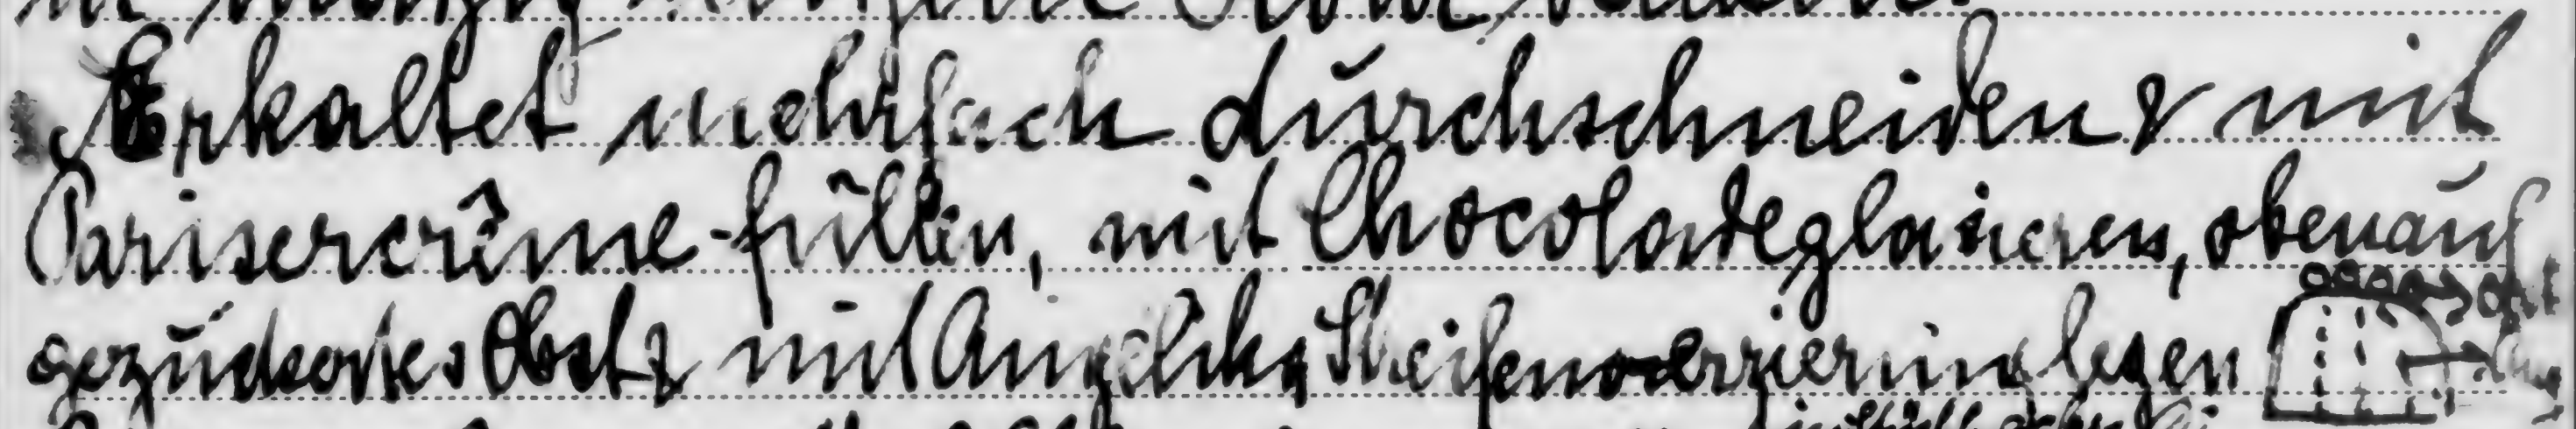 Erkaltet mehrfach durchschneiden & mit
Parisercrême-füllen, mit Chocoladeglasieren, obenauf
gezuckertes Obst & mit Angelika Streifenverzierung legen